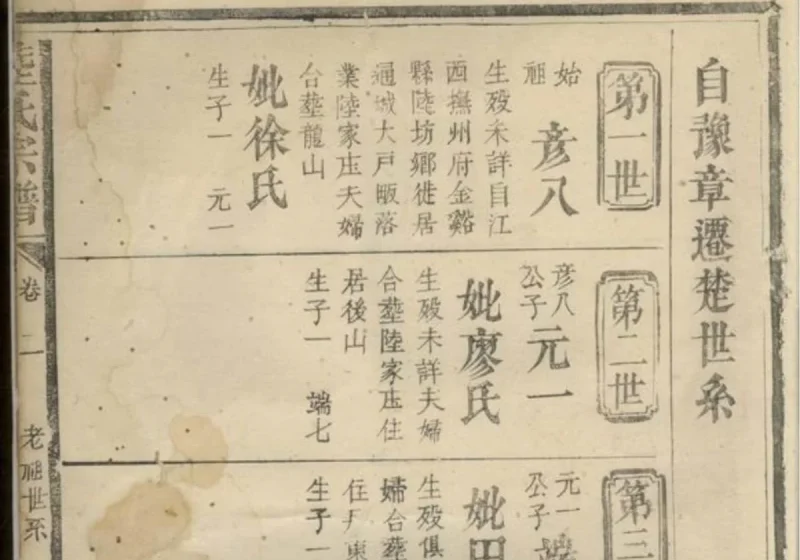 自豫章遷楚世系
第一世
始祖
彦八
生殁未詳自江
西撫州府金谿
縣陸坊鄉徙居
通城大戶畈落
業陸家庄夫婦
合塟龍山
妣徐氏
生子一 元一
第二世
彦八公子
元一
妣廖氏
生殁未詳夫婦
合塟陸家庄住
居後山
生子一 端七
第三
元一公子
妣田
生殁俱
婦合塟
生子一
氏宗譜
卷二
老祖世系